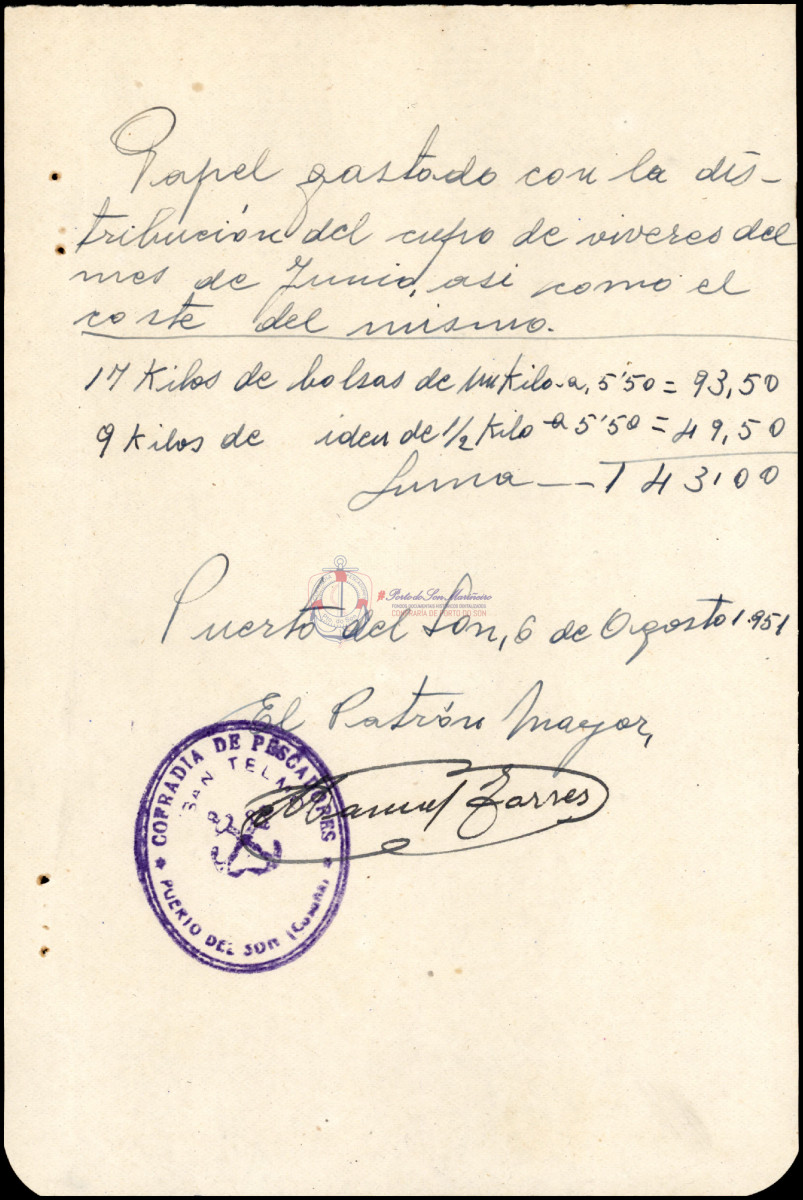 Papel gastado con la dis-
tribución del cupo de viveres del
mes de Junio, asi como el
coste del mismo.
17 Kilos de bolsas de un Kilo-a, 5'50 = 93,50
9 Kilos de iden de 1/2 Kilo-a 5'50 = 49,50
Suma — 143'00
Porto do Son Mariñeiro
FONDOS DOCUMENTAIS HISTÓRICOS DIXITALIZADOS
CONFRARÍA DE PORTO DO SON
Puerto del Son, 6 de Agosto 1.951
El Patrón Mayor,
Manuel Torres
COFRADIA DE PESCADORES
SAN TELMO
PUERTO DEL SON (Coruña)